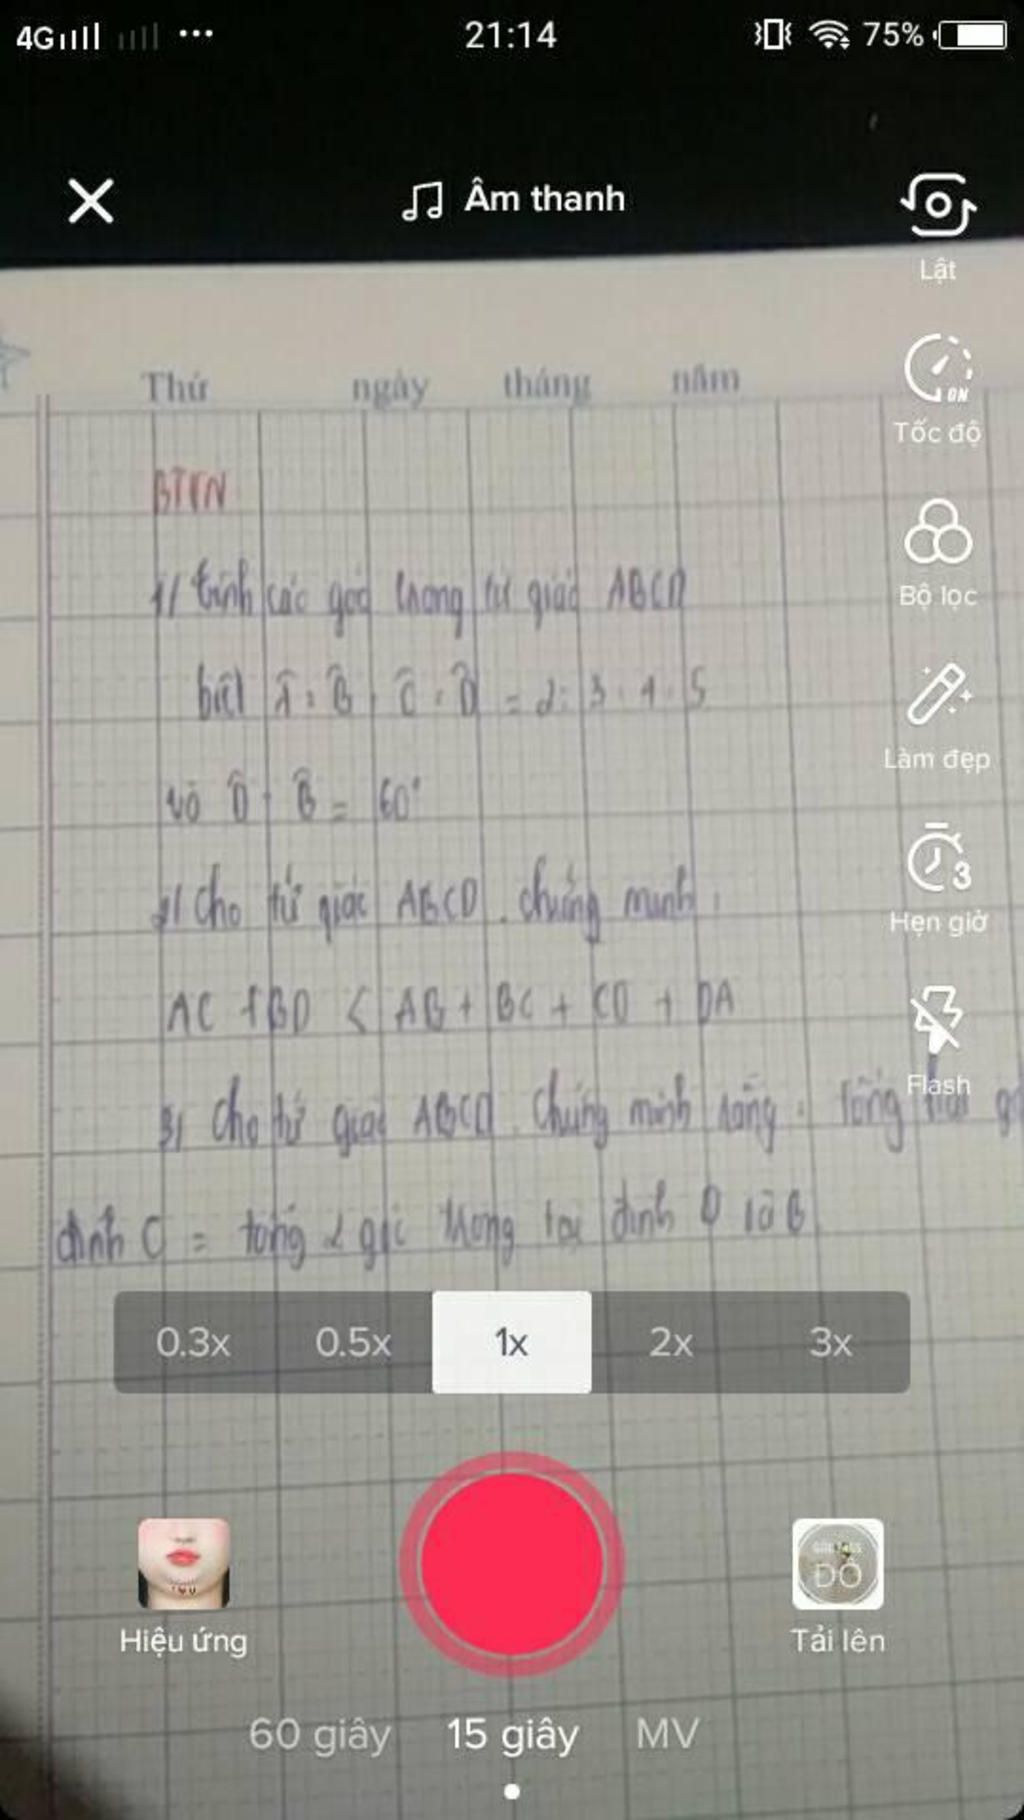 4G 21:14 75%
Âm thanh
Lật
Thứ ngày tháng năm
Tốc độ
ON
BTVN
1/ tính các góc trong tứ giác ABCD
Bộ lọc
biết Â : B̂ : Ĉ : D̂ = 2 : 3 : 4 : 5
Làm đẹp
và D̂ + B̂ = 60°
3
2/ Cho tứ giác ABCD. chứng minh:
Hẹn giờ
AC + BD < AB + BC + CD + DA
Flash
3/ Cho tứ giác ABCD. Chứng minh rằng: tổng
đỉnh C = tổng 2 góc trong tại đỉnh D và B
0.3x 0.5x 1x 2x 3x
ĐỎ
Hiệu ứng Tải lên
60 giây 15 giây MV